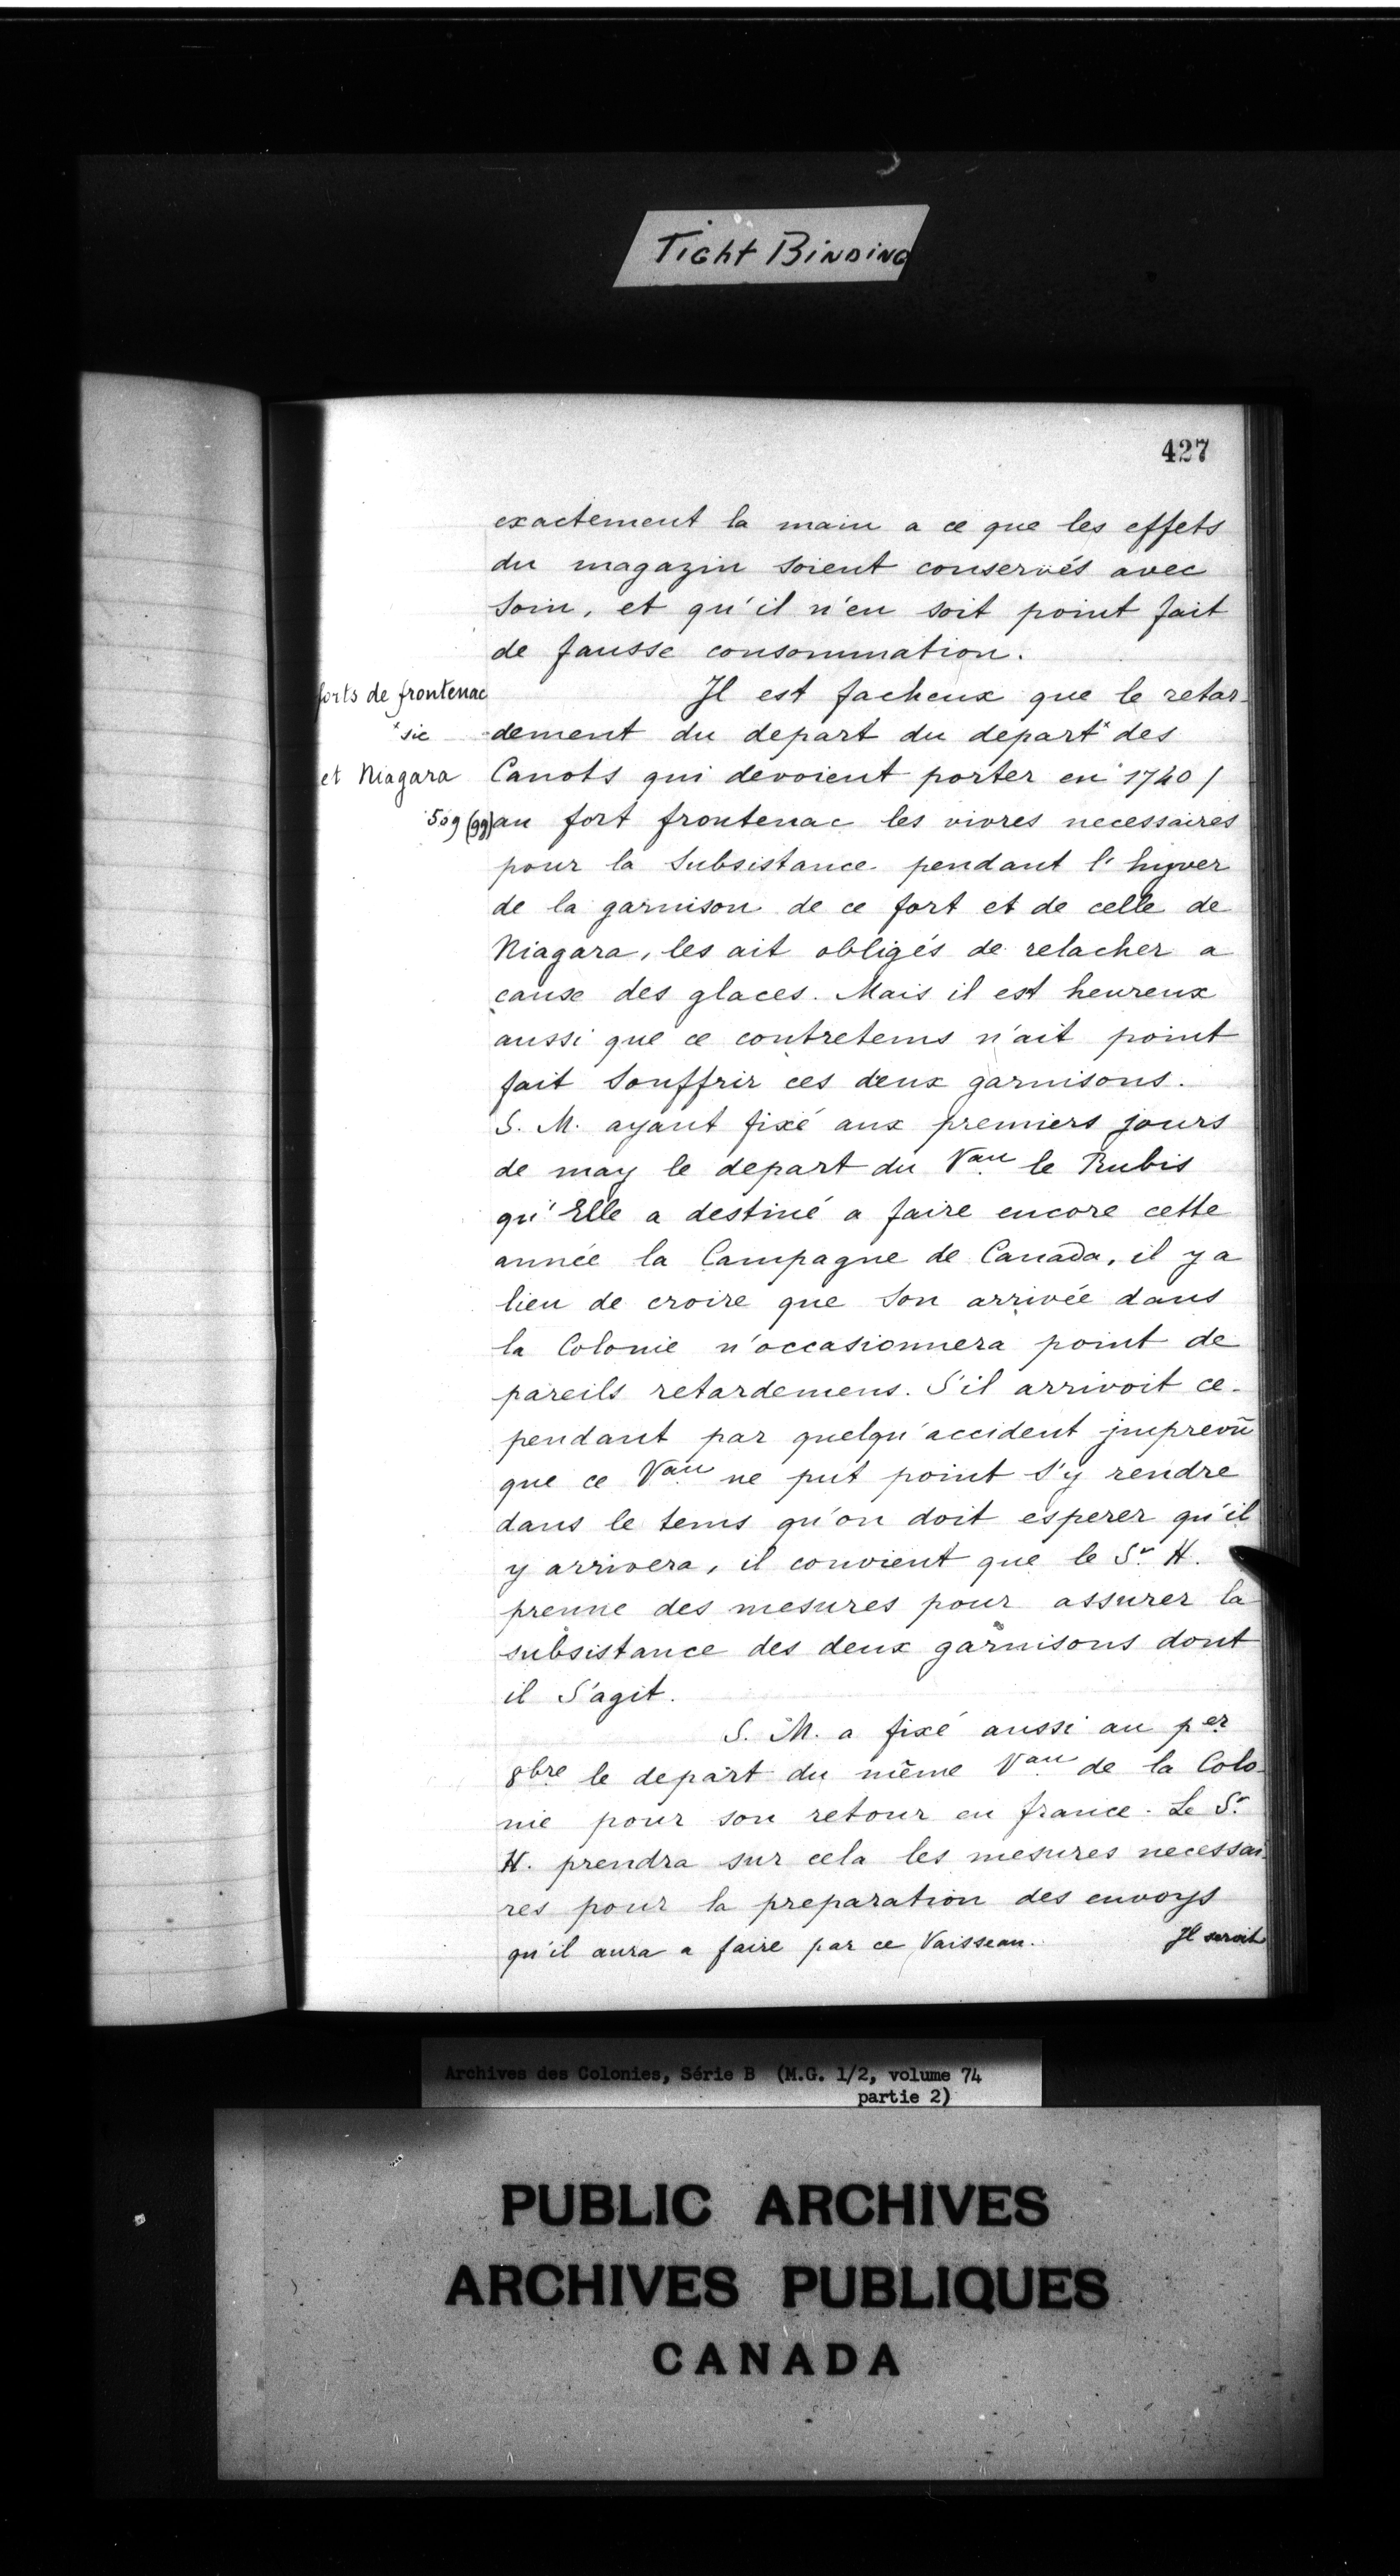 Tight Binding
427
exactement la main a ce que les effets
du magazin soient conservés avec
soin, et qu'il n'en soit point fait
de fausse consommation.
forts de frontenac
Il est facheux que le retar-
*sic
dement du depart du depart* des
et Niagara
Canots qui devoient porter en 1740 /
509 (99)
au fort frontenac les vivres necessaires
pour la subsistance pendant l'hyver
de la garnison de ce fort et de celle de
Niagara, les ait obligés de relacher a
cause des glaces. Mais il est heureux
aussi que ce contretems n'ait point
fait souffrir ces deux garnisons.
S. M. ayant fixé aux premiers jours
de may le depart du Vau le Rubis
qu'Elle a destiné a faire encore cette
année la Campagne de Canada, il y a
lieu de croire que son arrivée dans
la Colonie n'occasionnera point de
pareils retardemens. S'il arrivoit ce-
pendant par quelqu'accident jmprevû
que ce Vau ne put point s'y rendre
dans le tems qu'on doit esperer qu'il
y arrivera, il convient que le Sr H.
prenne des mesures pour assurer la
subsistance des deux garnisons dont
il S'agit.
S. M. a fixé aussi au per
8bre le depart du même Vau de la Colo-
nie pour son retour en france. Le Sr
H. prendra sur cela les mesures necessai-
res pour la preparation des envoys
qu'il aura a faire par ce Vaisseau.
Il seroit
Archives des Colonies, Série B (M.G. 1/2, volume 74
partie 2)
PUBLIC ARCHIVES
ARCHIVES PUBLIQUES
CANADA